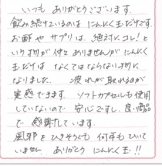 いつも ありがとうございます。
飲み続けているのは にんにく玉だけです。
お酢や サプリは、絶対にコレ！と
いう物が 他に ありませんが にんにく
玉だけは なくてはならない物に
なりました。 疲れが 取れるのが
実感できます。 ソフトカプセルも使用
していないので 安心ですし、良い商品
で 感謝しています。
風邪を ひきそうにも 何年も ひいて
いません ありがとう にんにく玉!!